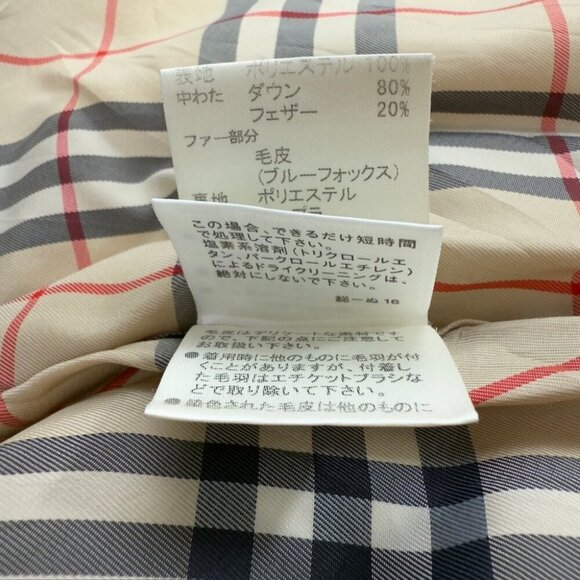 表地 ポリエステル 100%
中わた ダウン 80%
フェザー 20%
ファー部分
毛皮
(ブルーフォックス)
裏地 ポリエステル
この場合、できるだけ短時間
で処理して下さい。
塩素系溶剤(トリクロールエ
タン、パークロールエチレン)
によるドライクリーニングは、
絶対にしないで下さい。
総一ぬ16
毛皮はデリケートな素材です
ので、下記の点にご注意して
お取扱い下さい。
●着用時に他のものに毛羽が付
くことがありますが、付着し
た毛羽はエチケットブラシな
どで取り除いて下さい。
●染色された毛皮は他のものに